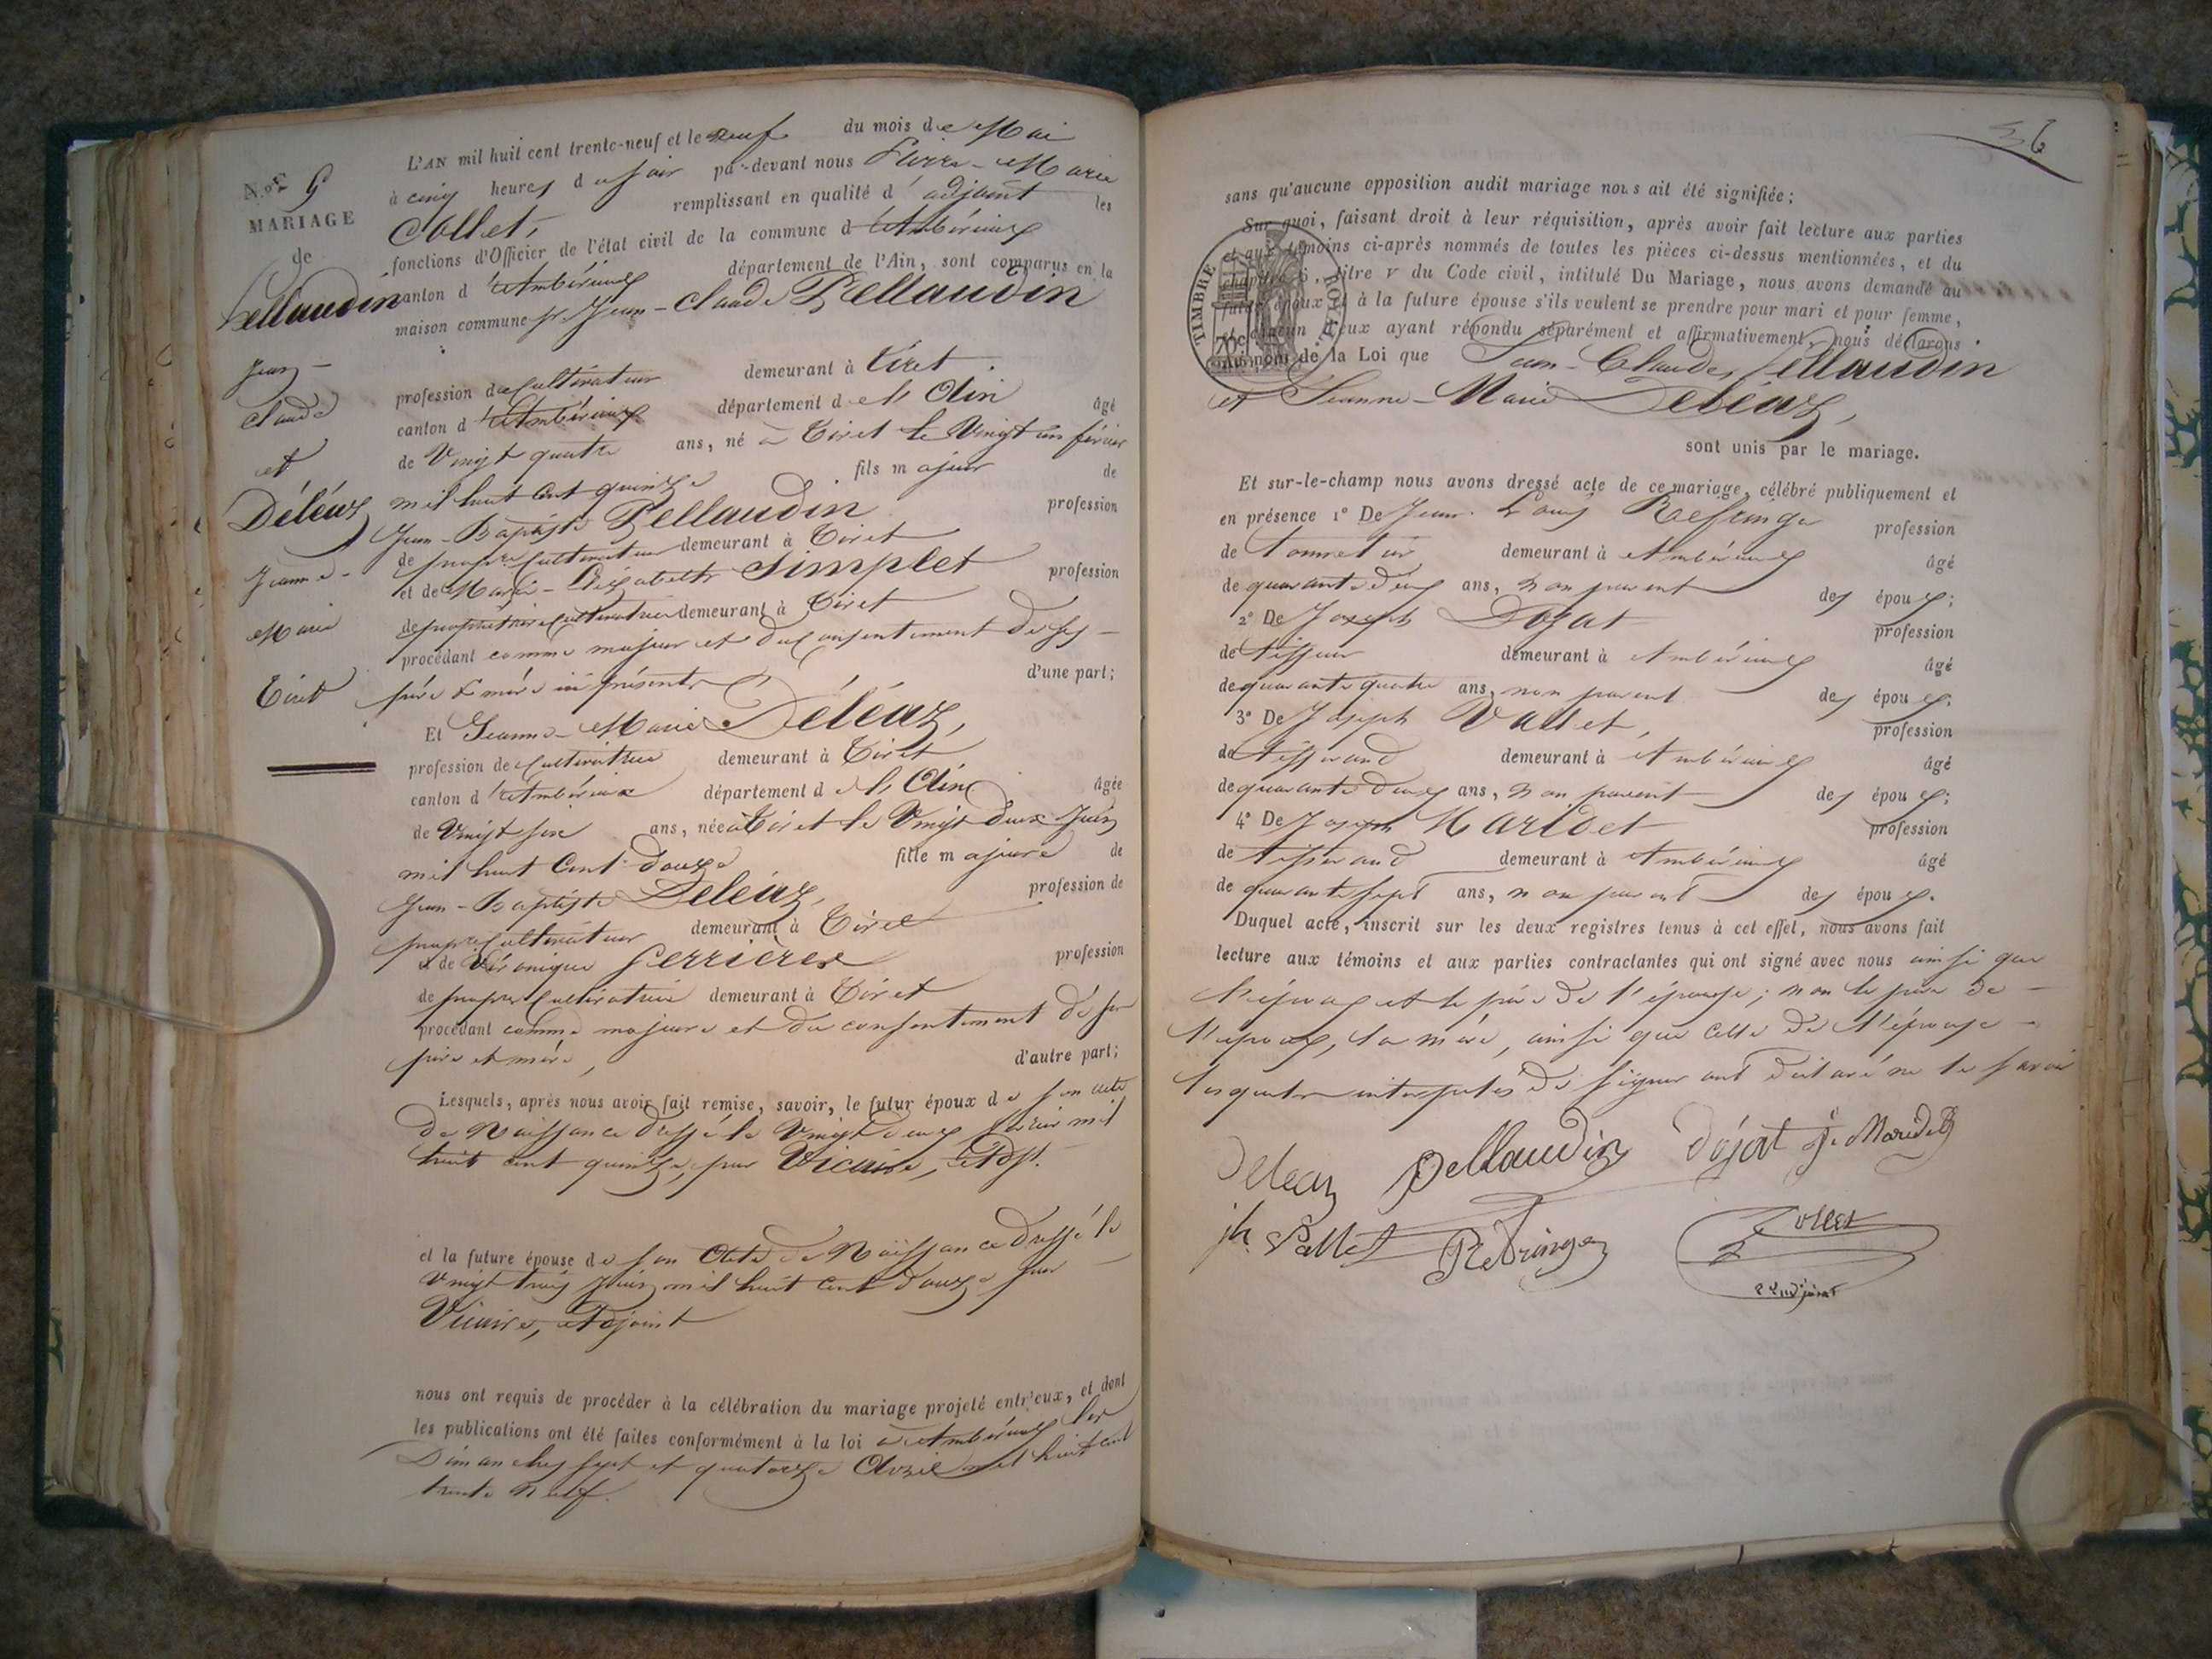 N.o 9
MARIAGE
de
Pellaudin
Jean-
Claude
et
Déléaz
Jeanne-
Marie
Tiret
L'AN mil huit cent trente-neuf et le neuf du mois de Mai
à cinq heures du soir par-devant nous Pierre-Marie
Collet, remplissant en qualité d'adjoint les
fonctions d'Officier de l'état civil de la commune d'Ambérieux
canton d'Ambérieux département de l'Ain, sont comparus en la
maison commune Jean-Claude Pellaudin
profession de Cultivateur demeurant à Tiret
canton d'Ambérieux département de l'Ain âgé
de Vingt quatre ans, né à Tiret le Vingt un février
mil huit Cent quinze fils majeur de
Jean-Baptiste Pellaudin profession
de propre Cultivateur demeurant à Tiret
et de Marie-Elizabeth Simplet profession
de propriétaire Cultivatrice demeurant à Tiret
procédant comme majeur et du Consentement de ses
père & mère ici présents d'une part;
Et Jeanne-Marie Déléaz,
profession de Cultivatrice demeurant à Tiret
canton d'Ambérieux département de l'Ain âgée
de Vingt six ans, née à Tiret le Vingt Deux Juin
mil huit Cent Douze fille majeure de
Jean-Baptiste Déléaz, profession de
propre Cultivateur demeurant à Tiret
et de Véronique Ferrières profession
de propre Cultivatrice demeurant à Tiret
procédant comme majeure et du consentement de ses
père et mère, d'autre part;
Lesquels, après nous avoir fait remise, savoir, le futur époux de son acte
de Naissance dressé le Vingt deux février mil
huit cent quinze, par Vicaire, adjt.
et la future épouse de son Acte de Naissance Dressé le
Vingt trois Juin mil huit Cent Douze par
Vicaire, adjoint
nous ont requis de procéder à la célébration du mariage projeté entr'eux, et dont
les publications ont été faites conformément à la loi à Ambérieux les
Dimanches sept et quatorze Avril mil huit cent
trente neuf.
36
sans qu'aucune opposition audit mariage nous ait été signifiée;
Sur quoi, faisant droit à leur réquisition, après avoir fait lecture aux parties
et aux témoins ci-après nommés de toutes les pièces ci-dessus mentionnées, et du
chapitre 6, titre V du Code civil, intitulé Du Mariage, nous avons demandé au
futur époux et à la future épouse s'ils veulent se prendre pour mari et pour femme,
et chacun d'eux ayant répondu séparément et affirmativement, nous déclarons
au nom de la Loi que Jean-Claude Pellaudin
et Jeanne-Marie Déléaz,
sont unis par le mariage.
TIMBRE ROYAL
70c
Et sur-le-champ nous avons dressé acte de ce mariage, célébré publiquement et
en présence 1° De Jean-Louis profession
de demeurant à Ambérieux âgé
de quarante deux ans, non parent des époux;
2° De Joseph Dojat profession
de tisseur demeurant à Ambérieux âgé
de quarante quatre ans, non parent des époux;
3° De Joseph Vallet, profession
de tisserand demeurant à Ambérieux âgé
de quarante deux ans, non parent des époux;
4° De Joseph Maridet profession
de tisserand demeurant à Ambérieux âgé
de quarante sept ans, non parent des époux.
Duquel acte, inscrit sur les deux registres tenus à cet effet, nous avons fait
lecture aux témoins et aux parties contractantes qui ont signé avec nous ainsi que
l'époux et le père de l'épouse; non le père de
l'époux, la mère, ainsi que celle de l'épouse
lesquels interpellés de signer ont déclaré ne le savoir
Deleaz Pellaudin dojat J. Maridet
jh Vallet Collet
adjoint